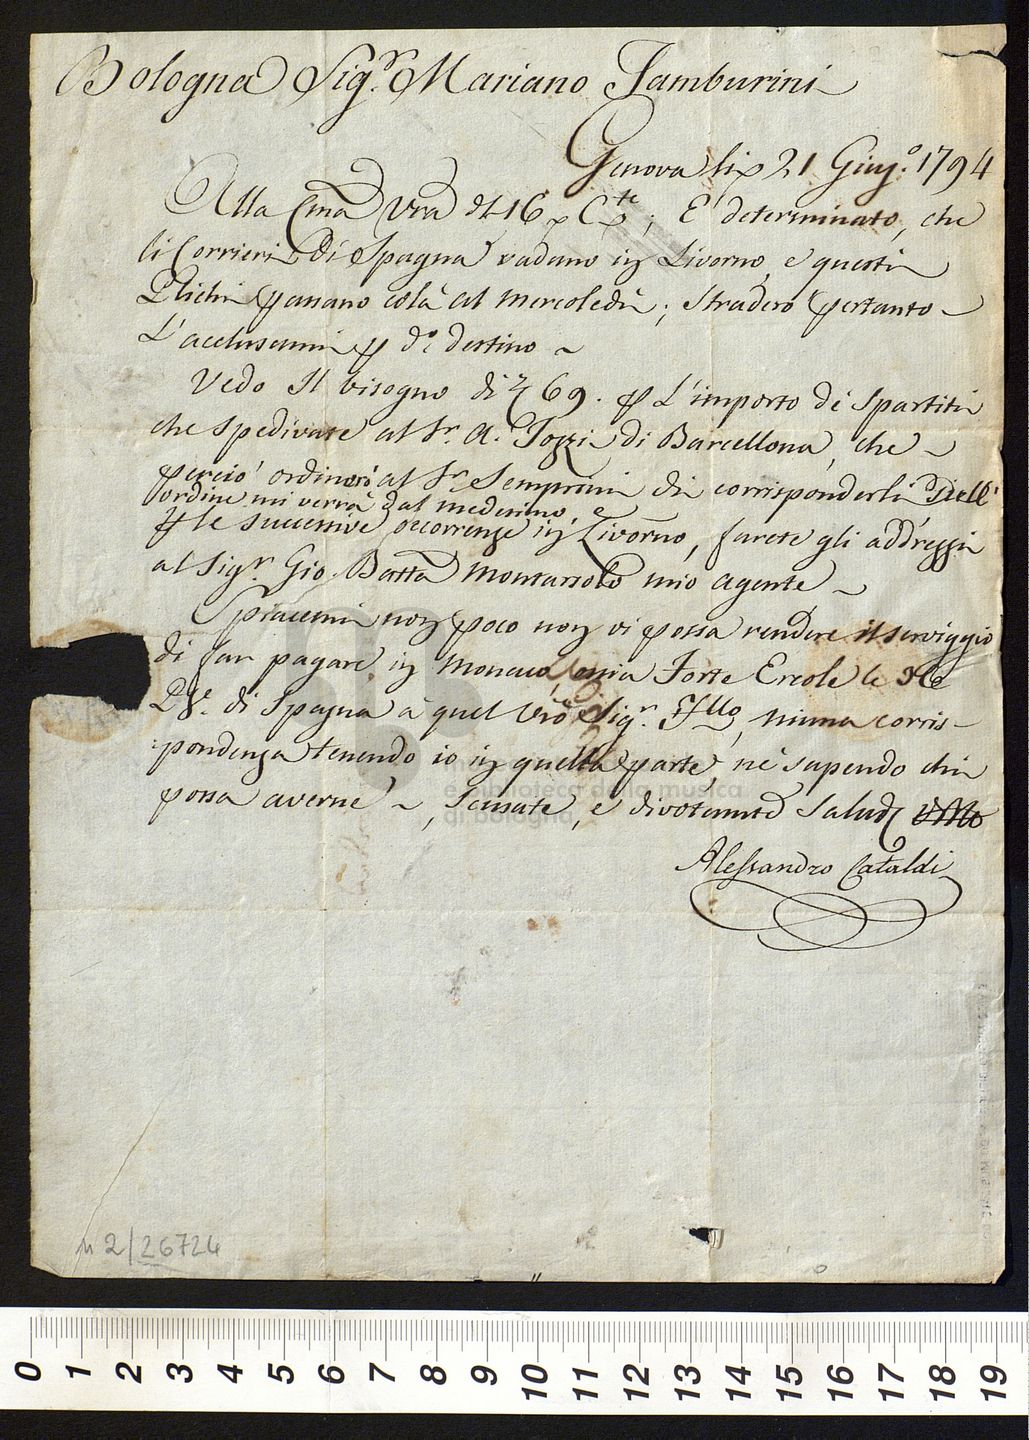 Bologna Sig.r Mariano Tamburini
Genova li 21 Giug.o 1794
Alla Cma Vra di 16 C.te; E' determinato, che
li Corrieri di Spagna vadano in Livorno, e questi
Plichi passano colà al mercoledì; stradero pertanto
L'acclusami p d.o destino ~
Vedo Il bisogno di 69. p L'importo de Spartiti
che spedivate al Sr. A. Tozzi di Barcellona, che
perciò ordinerò al Sr. Semprini di corrisponderli Dell'
ordine mi verrà dal medesimo, e
p le successive occorrenze in Livorno, farete gli addrezzi
al Sig.r Gio Batta mio agente ~
Spiacemi non poco non vi possa rendere il serviggio
di far pagare in Monaco, ossia Forte Ercole le
di Spagna à quel Sig.r niuna corris-
pondenza tenendo io in quella parte, nè sapendo chi
possa averne ~, scusate, e divotamte Salud
Alessandro Cataldi
museo internazionale
e biblioteca della musica
di bologna
2/26724
0 1 2 3 4 5 6 7 8 9 10 11 12 13 14 15 16 17 18 19